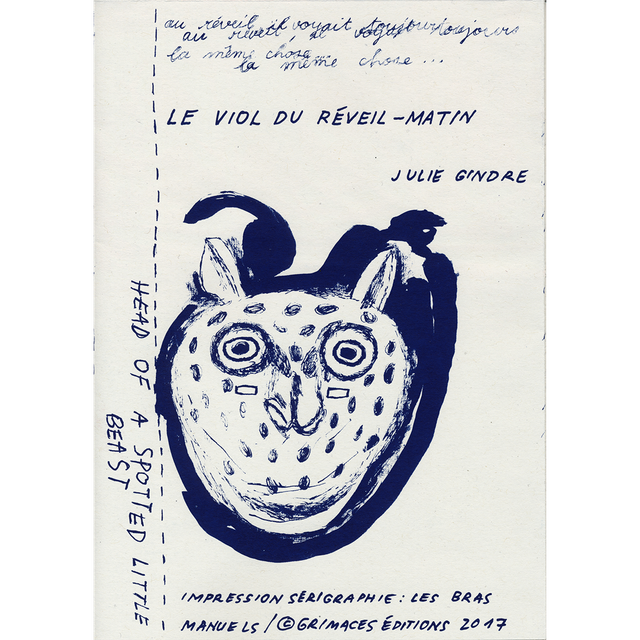 au réveil, il voyait toujours toujours
au réveil, il voyait
la même chose
la même chose ...
LE VIOL DU RÉVEIL-MATIN
JULIE GINDRE
HEAD OF A SPOTTED LITTLE
BEAST
IMPRESSION SÉRIGRAPHIE : LES BRAS
MANUELS / © GRIMACES ÉDITIONS 2017